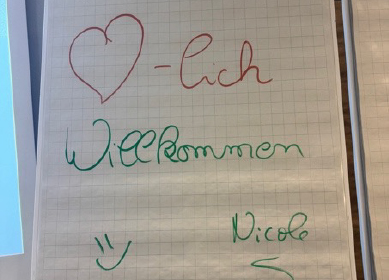 ♡-lich
Willkommen
Nicole